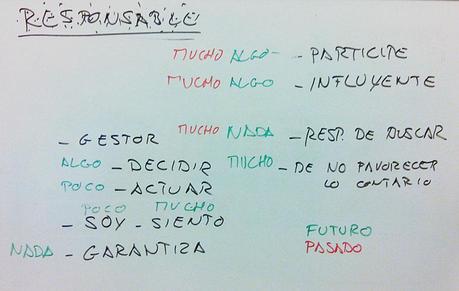 RESPONSABLE
MUCHO ALGO - PARTICIPE
MUCHO ALGO - INFLUYENTE
- GESTOR
MUCHO NADA - RESP. DE BUSCAR
ALGO - DECIDIR
MUCHO - DE NO FAVORECER
LO CONTARIO
POCO - ACTUAR
POCO MUCHO
- SOY - SIENTO
NADA - GARANTIZA
FUTURO
PASADO